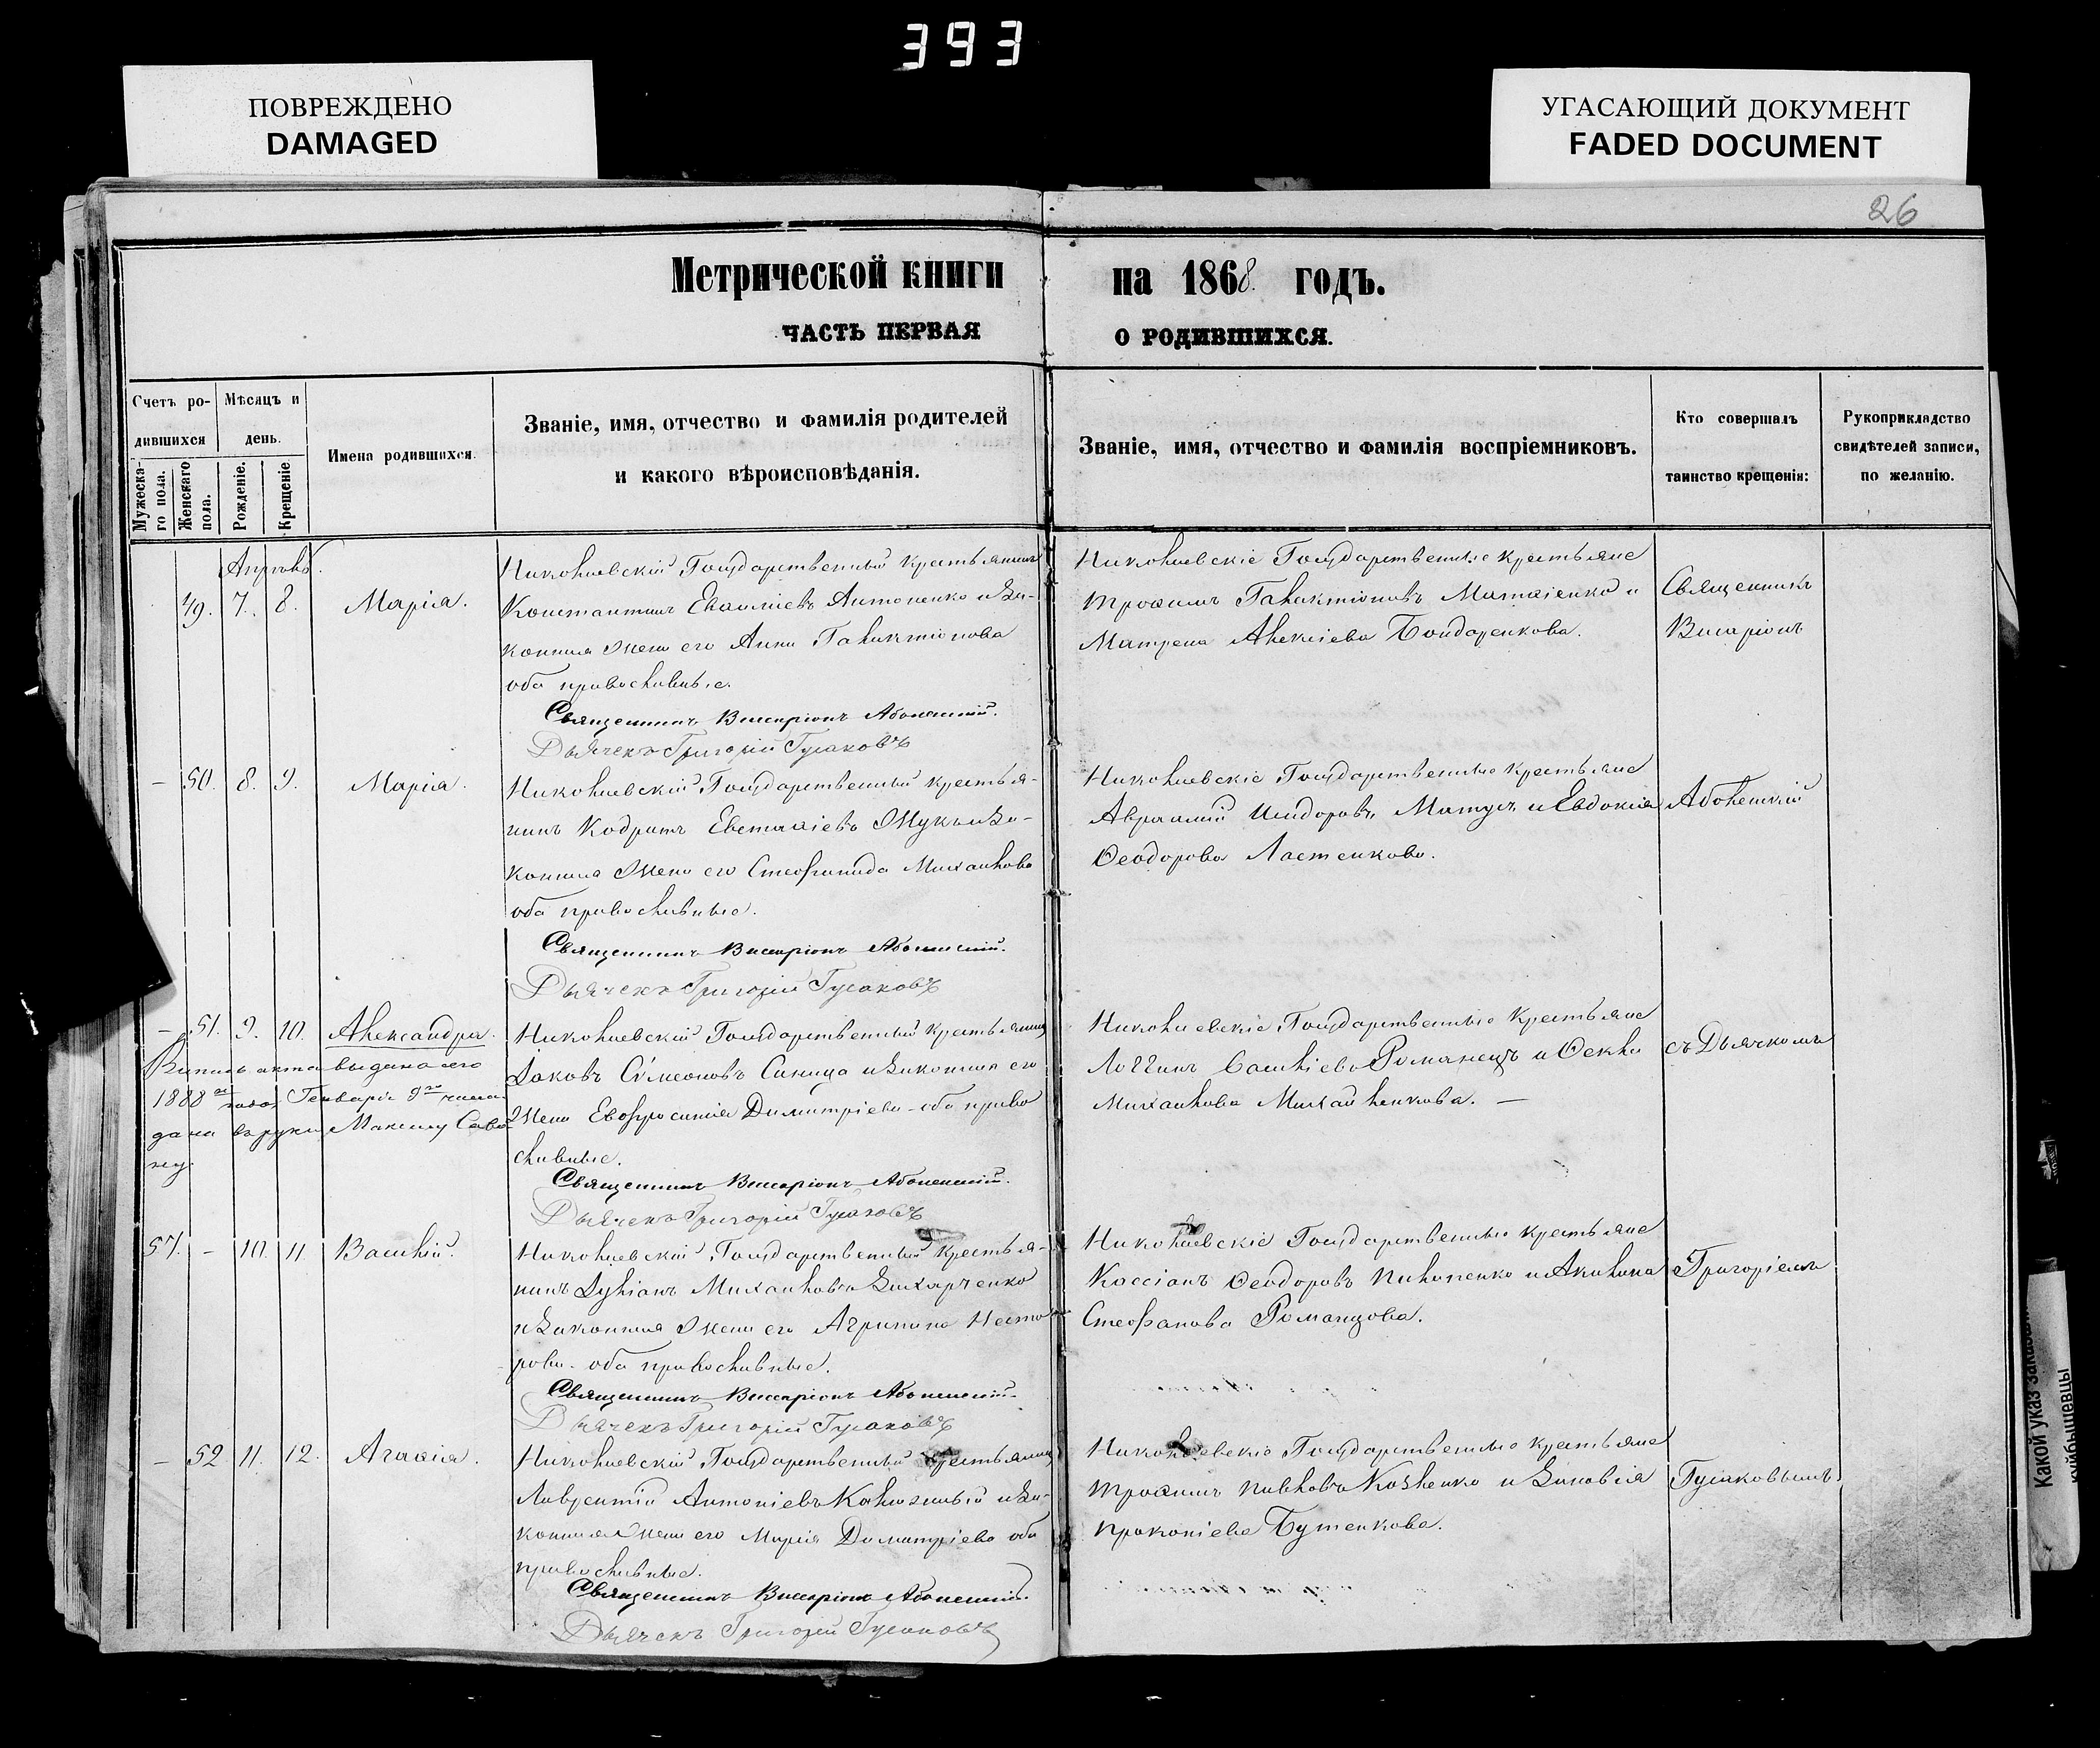 393
ПОВРЕЖДЕНО
DAMAGED
УГАСАЮЩИЙ ДОКУМЕНТ
FADED DOCUMENT
26
Метрической книги на 1868. годъ.
ЧАСТЬ ПЕРВАЯ О РОДИВШИХСЯ.
Счетъ ро-
дившихся
Мужеска-
го пола.
Женскаго
пола.
Мѣсяцъ и
день.
Рожденіе.
Крещеніе.
Имена родившихся.
Званіе, имя, отчество и фамилія родителей
и какого вѣроисповѣданія.
Званіе, имя, отчество и фамилія воспріемниковъ.
Кто совершалъ
таинство крещенія:
Рукоприкладство
свидѣтелей записи,
по желанію.
Апрѣль.
49. 7. 8. Марія.
Николаевскій Государственный крестьянинъ
Константинъ Евѳиміевъ Антоненко и за-
конная жена его Анна Галактіонова
оба православные.
Священникъ Виссаріонъ
Дьячекъ Григорій Гусаковъ
Николаевскіе Государственные крестьяне
Трофимъ Галактіоновъ Матвіенко и
Матрена Алексіева Бондаренкова.
Священникъ
Висаріонъ
— 50. 8. 9. Марія.
Николаевскій Государственный крестья-
нинъ Кодратъ Евстафіевъ Жукъ и за-
конная жена его Стефанида Михаилова
оба православные.
Священникъ Виссаріонъ
Дьячекъ Григорій Гусаковъ
Николаевскіе Государственные крестьяне
Авраамій Исидоровъ и Евдокія
Ѳеодорова Ластенкова.
— 51. 9. 10. Александра.
Выпись акта выдана его
1888 года Генваря 9го числа
дана въ руки Максиму
Николаевскій Государственный крестьянинъ
Іаковъ Сѵмеоновъ Синица и законная его
жена Евфросинія Димитріева - оба право
славные.
Священникъ Виссаріонъ
Дьячекъ Григорій Гусаковъ
Николаевскіе Государственные крестьяне
Логгинъ Васильевъ Романецъ и Ѳекла
Михаилова Михайленкова. —
съ Дьячкомъ
57. - 10. 11. Василій.
Николаевскій Государственный крестья-
нинъ Лукіанъ Михаиловъ Захарченко
и законная жена его Агрипина Несто-
рова - оба православные.
Священникъ Виссаріонъ
Дьячекъ Григорій Гусаковъ
Николаевскіе Государственные крестьяне
Кассіанъ Ѳеодоровъ Пилипенко и Акилина
Стефанова Романцова.
Григоріемъ
— 52 11. 12. Агафія.
Николаевскій Государственный крестьянинъ
Лаврентій Антоніевъ Калюжный и за-
конная жена его Марія Димитріева оба
православные.
Священникъ Виссаріонъ
Дьячекъ Григорій Гусаковъ
Николаевскіе Государственные крестьяне
Трофимъ Павловъ Козленко и Зиновія
Прокопіева Бутенкова.
Гусаковымъ
Какой указ
куйбышевцы